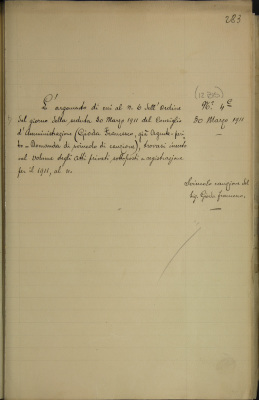 283
(12893)
N.° 4^2
30 Marzo 1911
L'argomento di cui al n. 6 dell'Ordine
del giorno della seduta 30 Marzo 1911 del Consiglio
d'Amministrazione (Giorda Francesco, già Agente
- Domanda di svincolo di cauzione), trovasi inserto
nel volume degli Atti privati sottoposti a registrazione
per il 1911, al n.
Svincolo cauzione del
Sig. Giorda Francesco.